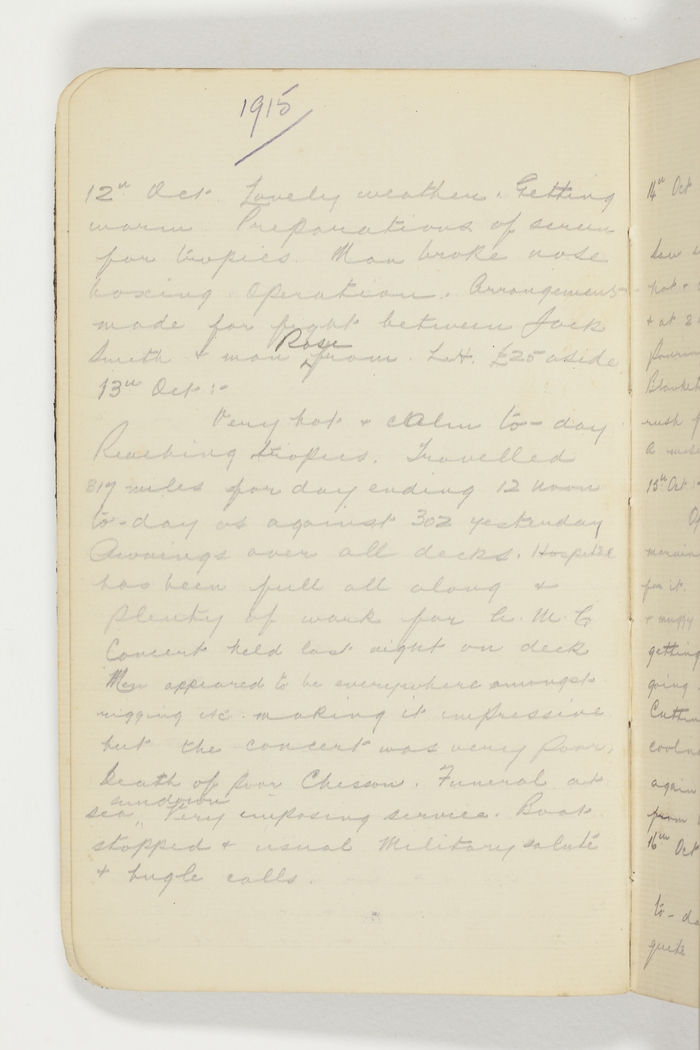 1915
12th Oct. Lovely weather. Getting
warm. Preparations of serum
for tropics. Man broke nose
boxing. Operation. Arrangements
made for fight between Jack
Smith & man Rose from L.H. £25 aside.
13th Oct :-
Very hot & calm to-day
Reaching tropics. Travelled
319 miles for day ending 12 noon
to-day as against 302 yesterday
Awnings over all decks. Hospital
has been full all along &
plenty of work for A.M.C
Concert held last night on deck
Men appeared to be everywhere amongst
rigging etc. making it impressive
but the concert was very poor.
Death of poor Chesson. Funeral at
sea sundown. Very imposing service. Boat
stopped & usual Military salute
& bugle calls.
14th Oct
hot &
& at 8
Blanket
rush f
15th Oct :-
for it.
& muggy
getting
going
again
from
16th Oct
to-da
quite